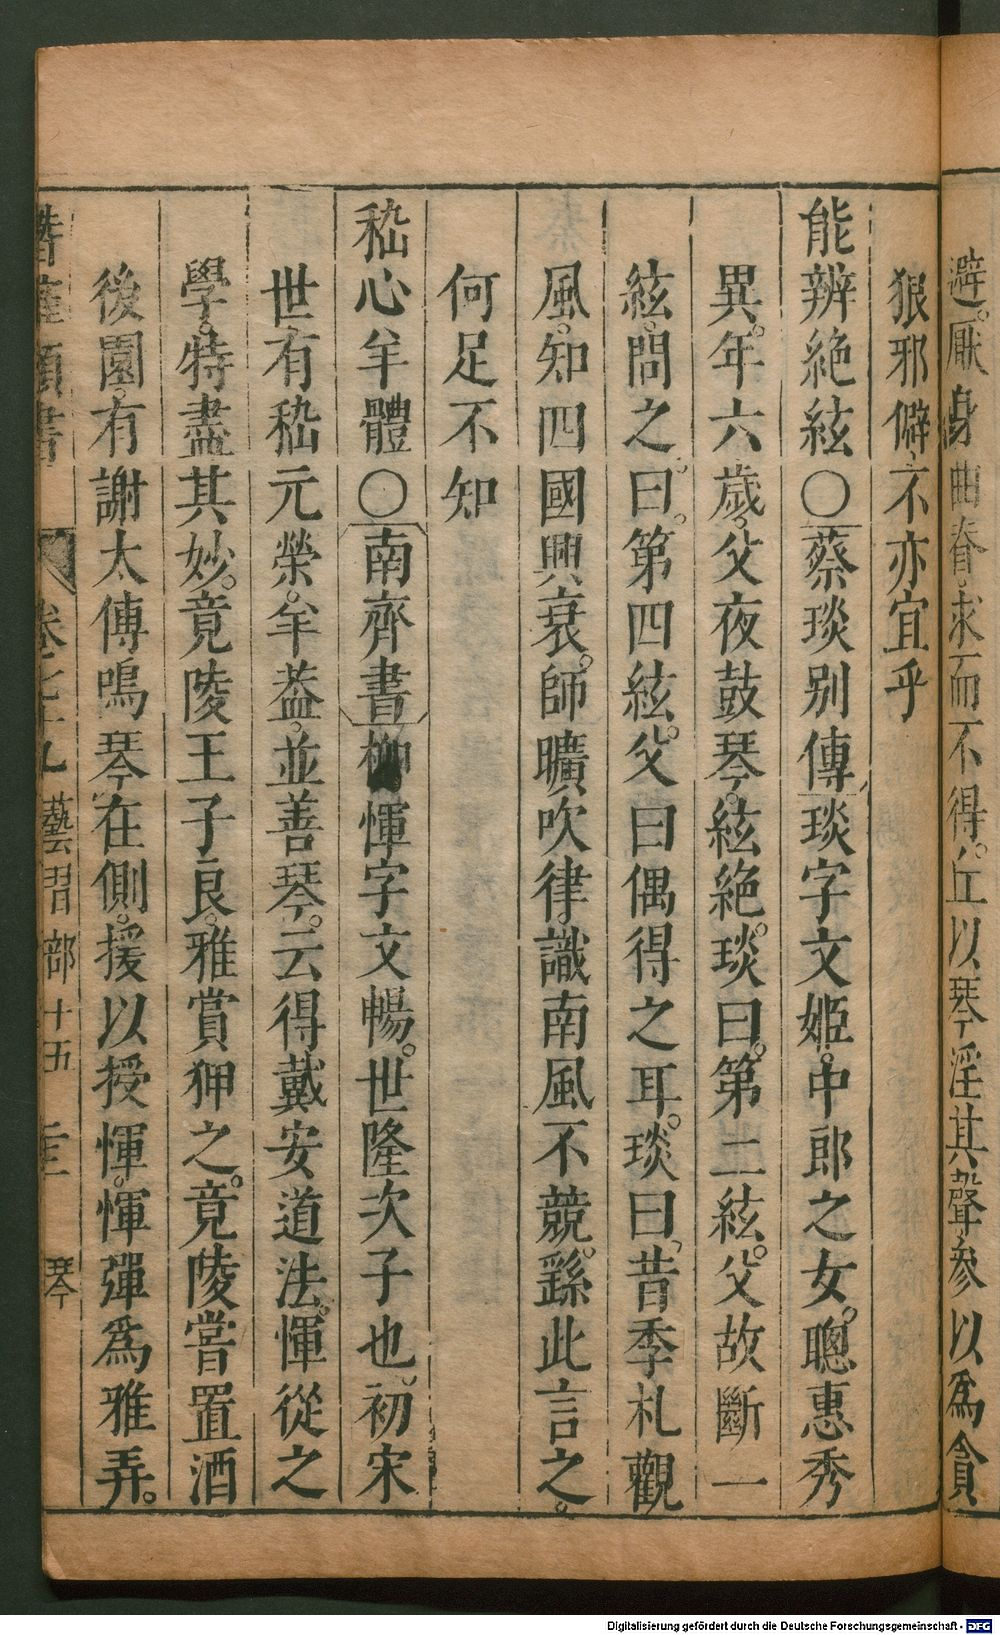 避。厭身曲脊。求而不得。丘以琴淫其聲。參以爲貪
狠邪僻。不亦宜乎
能辨絶絃○蔡琰别傳琰字文姬。中郎之女。聰惠秀
異。年六歲。父夜鼓琴。絃絶。琰曰。第二絃。父故斷一
絃。問之。曰。第四絃。父曰偶得之耳。琰曰。昔季札觀
風。知四國興衰。師曠吹律。識南風不競。繇此言之。
何足不知
嵇心羊體○南齊書柳惲字文暢。世隆次子也。初宋
世有嵇元榮。羊葢。並善琴。云得戴安道法。惲從之
學。特盡其妙。竟陵王子良。雅賞狎之。竟陵嘗置酒
後園有謝太傅鳴琴在側。援以授惲。惲彈爲雅弄。
類書 卷之十九 藝習部十五 琴
Digitalisierung gefördert durch die Deutsche Forschungsgemeinschaft - DFG